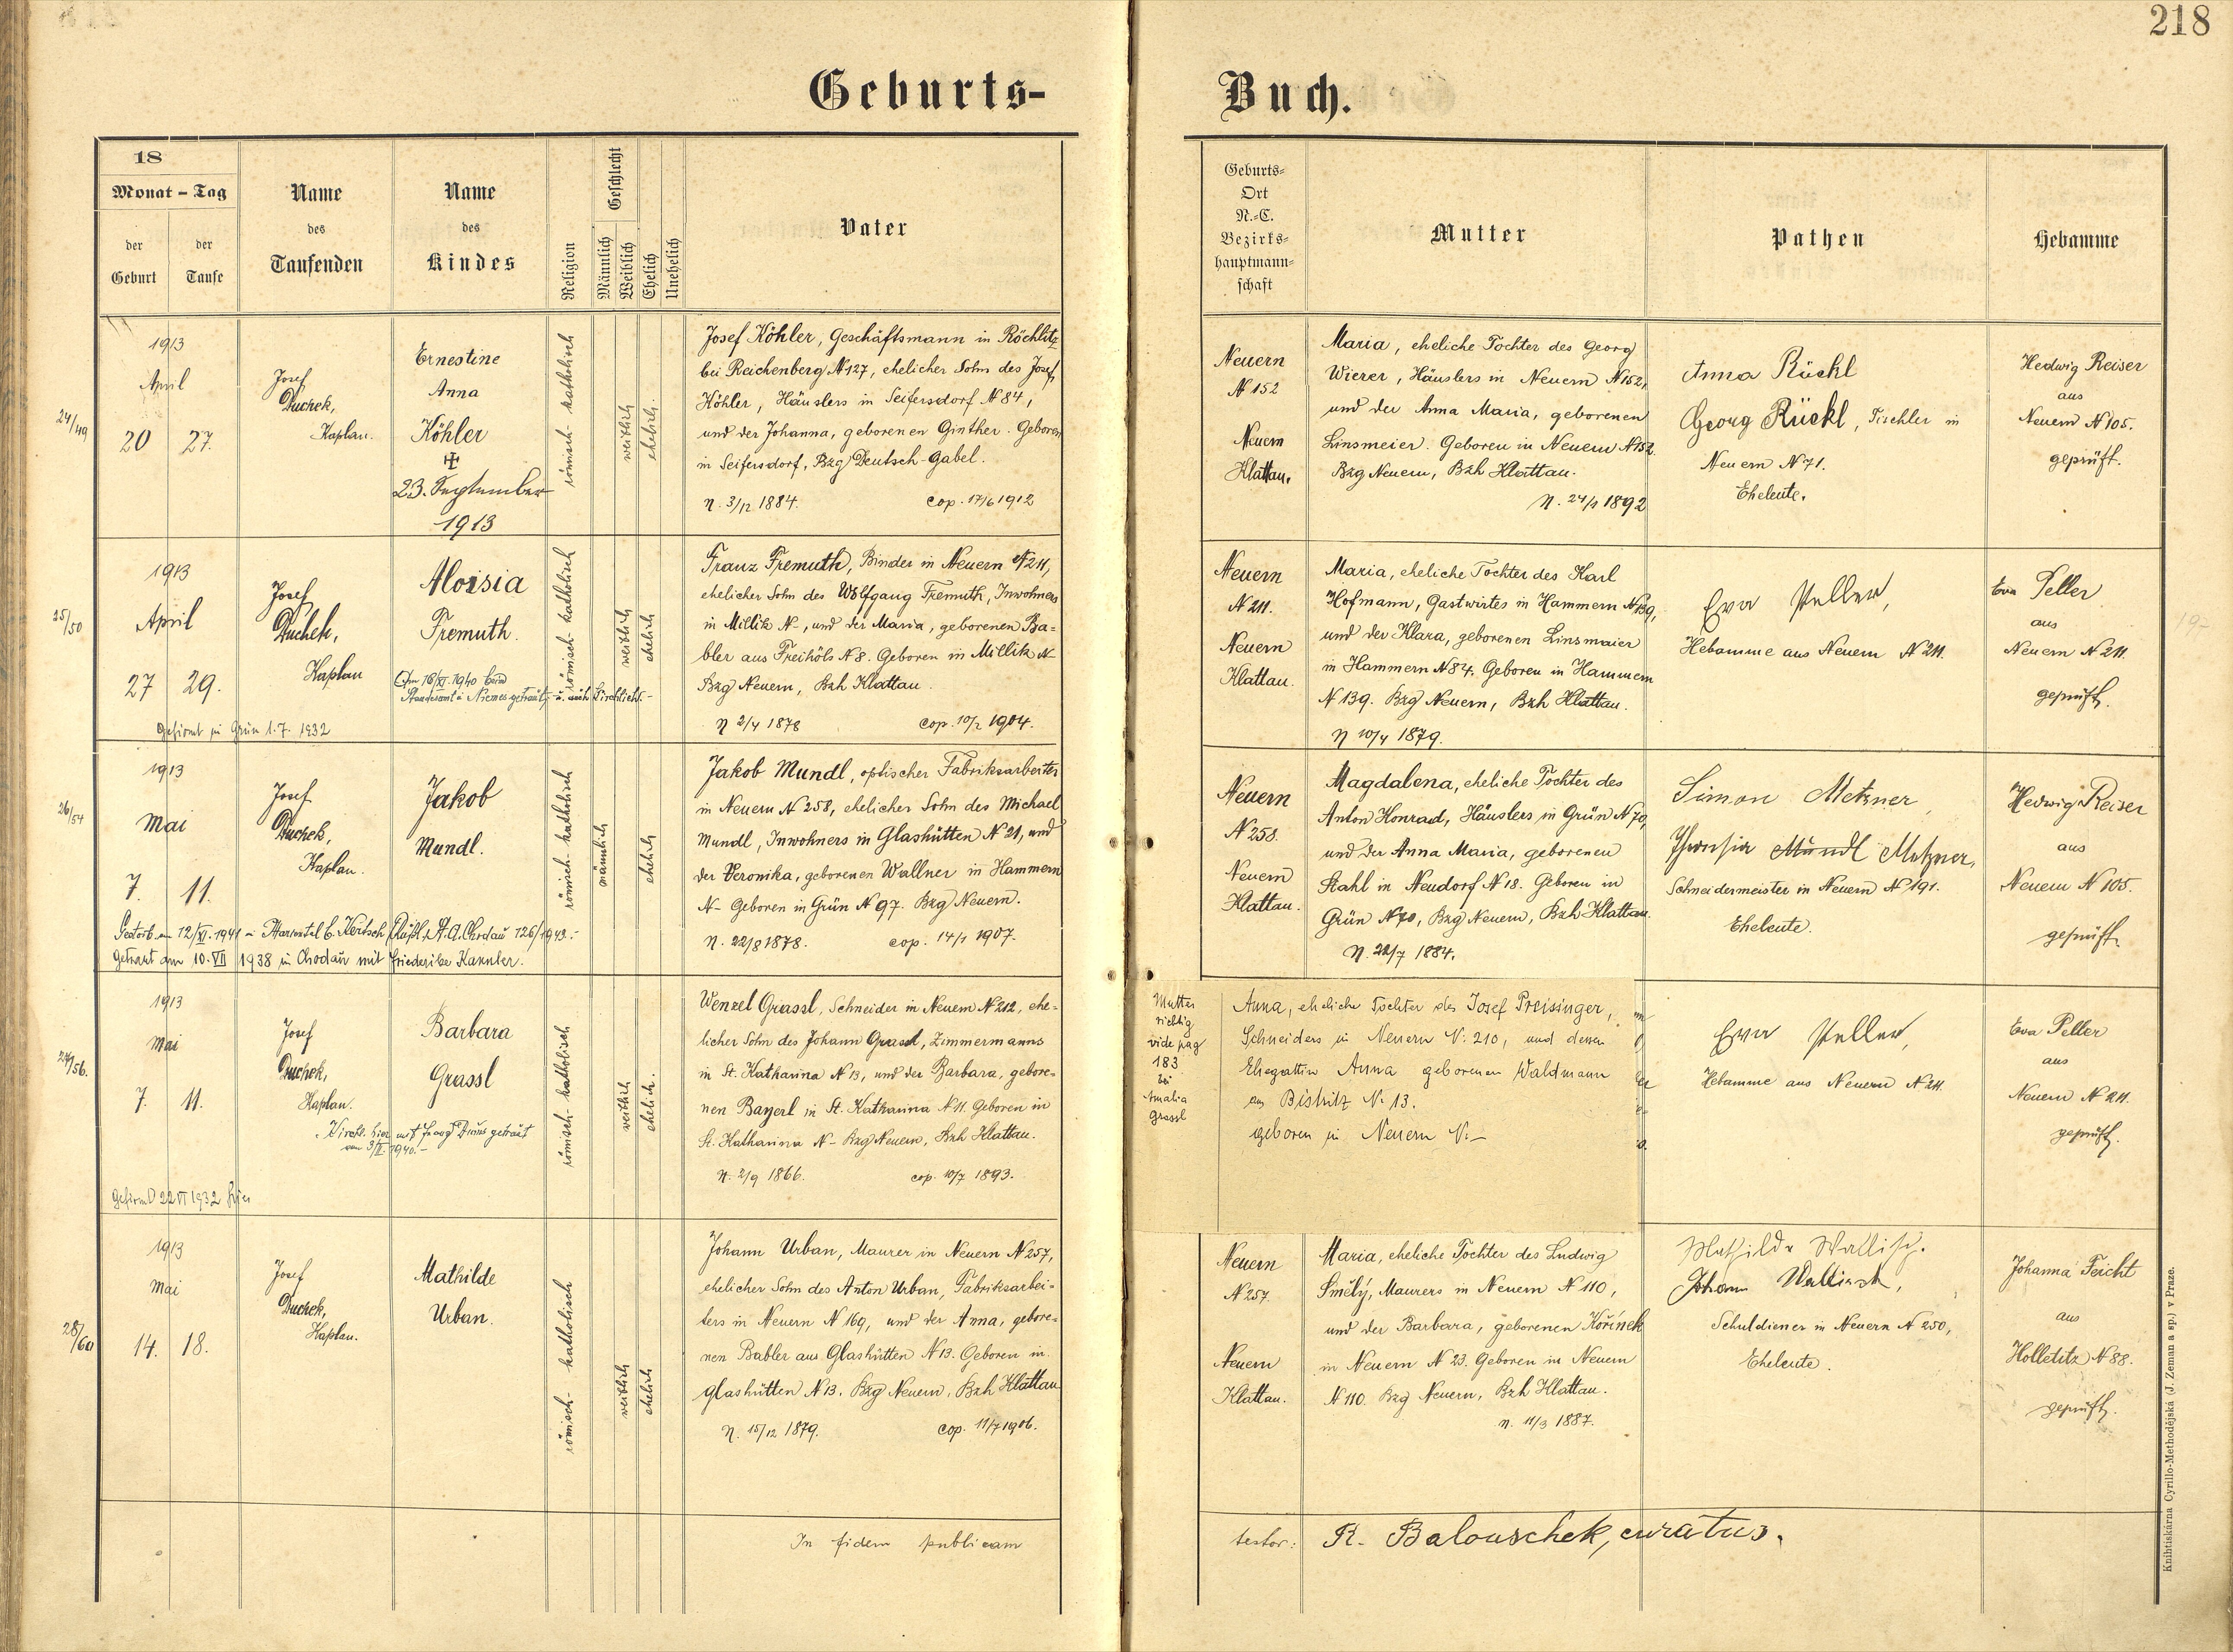 218
Geburts-Buch.
18
Monat - Tag
der Geburt
der Taufe
Name des Taufenden
Name des Kindes
Religion
Geschlecht
Männlich
Weiblich
Ehelich
Unehelich
Vater
Geburts-
Ort
N.-C.
Bezirks-
hauptmann-
schaft
Mutter
Pathen
Hebamme
24/49
1913
April
20 27.
Josef
Duchek,
Kaplan.
Ernestine
Anna
Köhler
23. September
1913
römisch-katholisch
weiblich
ehelich.
Josef Köhler, Geschäftsmann in Röchlitz
bei Reichenberg N 127, ehelicher Sohn des Josef
Köhler, Häuslers in Seifersdorf N 84,
und der Johanna, geborenen Ginther. Geboren
in Seifersdorf, Bzg Deutsch-Gabel.
N. 3/12 1884. cop. 17/6 1912
Neuern
N 152
Neuern
Klattau.
Maria, eheliche Tochter des Georg
Wierer, Häuslers in Neuern N 152,
und der Anna Maria, geborenen
Linsmeier. Geboren in Neuern N 152.
Bzg Neuern, Bzh Klattau.
N. 24/1 1892
Anna Rückl
Georg Rückl, Tischler in
Neuern N 71.
Eheleute.
Hedwig Reiser
aus
Neuern N 105.
geprüft.
25/50
1913
April
27 29.
Josef
Duchek,
Kaplan
Aloisia
Fremuth.
Am 16/XI. 1940 beim
Standesamt i Niemes getraut, u. auch kirchlicht.-
Gefirmt in Grün 1.7. 1932
römisch-katholisch
weiblich
ehelich
Franz Fremuth, Binder in Neuern N 211,
ehelicher Sohn des Wolfgang Fremuth, Inwohners
in Millik N-, und der Maria, geborenen Ba=
bler aus Freihöls N 8. Geboren in Millik N-
Bzg Neuern, Bzh Klattau.
N 2/4 1878 cop. 10/2 1904.
Neuern
N 211.
Neuern
Klattau.
Maria, eheliche Tochter des Karl
Hofmann, Gastwirtes in Hammern N 139,
und der Klara, geborenen Linsmaier
in Hammern N 84. Geboren in Hammern
N 139. Bzg Neuern, Bzh Klattau.
N 10/4 1879.
Eva Peller,
Hebamme aus Neuern N 211.
Eva Peller
aus
Neuern N 211.
geprüft.
26/54
1913
Mai
7. 11.
Josef
Duchek,
Kaplan.
Jakob
Mundl.
Gestorb. am 12/XI. 1941
St. A. Chodau 126/1943.-
Getraut am 10. VII 1938 in Chodau mit Friederike Kannler.
römisch-katholisch
männlich
ehelich
Jakob Mundl, optischer Fabriksarbeiter
in Neuern N 258, ehelicher Sohn des Michael
Mundl, Inwohners in Glashütten N 21, und
der Veronika, geborenen Wallner in Hammern
N- Geboren in Grün N 97. Bzg Neuern.
N. 22/8 1878. cop. 14/1 1907.
Neuern
N 258.
Neuern
Klattau.
Magdalena, eheliche Tochter des
Anton Konrad, Häuslers in Grün N 70,
und der Anna Maria, geborenen
Stahl in Neudorf N 18. Geboren in
Grün N 70, Bzg Neuern, Bzh Klattau.
N. 22/7 1884.
Simon Metzner,
Theresia Mundl Metzner,
Schneidermeister in Neuern N 191.
Eheleute.
Hedwig Reiser
aus
Neuern N 105.
geprüft.
27/56.
1913
Mai
7. 11.
Josef
Duchek,
Kaplan.
Barbara
Grassl
Kirchl. hier mit Georg getraut
am 3/II. 1940.-
Gefirmt 22 VI 1932 hier
römisch-katholisch
weiblich
ehelich.
Wenzel Grassl, Schneider in Neuern N 212, ehe=
licher Sohn des Johann Grassl, Zimmermanns
in St. Katharina N 13, und der Barbara, gebore=
nen Bayerl in St. Katharina N 11. Geboren in
St. Katharina N- Bzg Neuern, Bzh Klattau.
N. 2/9 1866. cop. 10/7 1893.
Mutter
richtig
vide pag
183
bei
Amalia
Grassl
Anna, eheliche Tochter des Josef Preisinger,
Schneiders in Neuern N: 210, und dessen
Ehegattin Anna geborenen Waldmann
aus Bistritz N: 13.
geboren in Neuern N:-
Eva Peller,
Hebamme aus Neuern N 211.
Eva Peller
aus
Neuern N 211.
geprüft.
28/60
1913
Mai
14. 18.
Josef
Duchek,
Kaplan.
Mathilde
Urban.
römisch-katholisch
weiblich
ehelich
Johann Urban, Maurer in Neuern N 257,
ehelicher Sohn des Anton Urban, Fabriksarbei=
ters in Neuern N 169, und der Anna, gebore=
nen Babler aus Glashütten N 13. Geboren in
Glashütten N 13. Bzg Neuern, Bzh Klattau
N. 15/12 1879. cop. 11/7 1906.
Neuern
N 257.
Neuern
Klattau.
Maria, eheliche Tochter des Ludwig
Smělý, Maurers in Neuern N 110,
und der Barbara, geborenen Kořínek
in Neuern N 23. Geboren in Neuern
N 110. Bzg Neuern, Bzh Klattau.
N. 11/3 1887.
Mathilde Wallisch.
Johann Wallisch,
Schuldiener in Neuern N 250,
Eheleute.
Johanna Feicht
aus
Holletitz N 88.
geprüft.
In fidem publicam
testor: R. Balouschek, curatus.
Knihtiskárna Cyrillo-Methodějská (J. Zeman a sp.) v Praze.